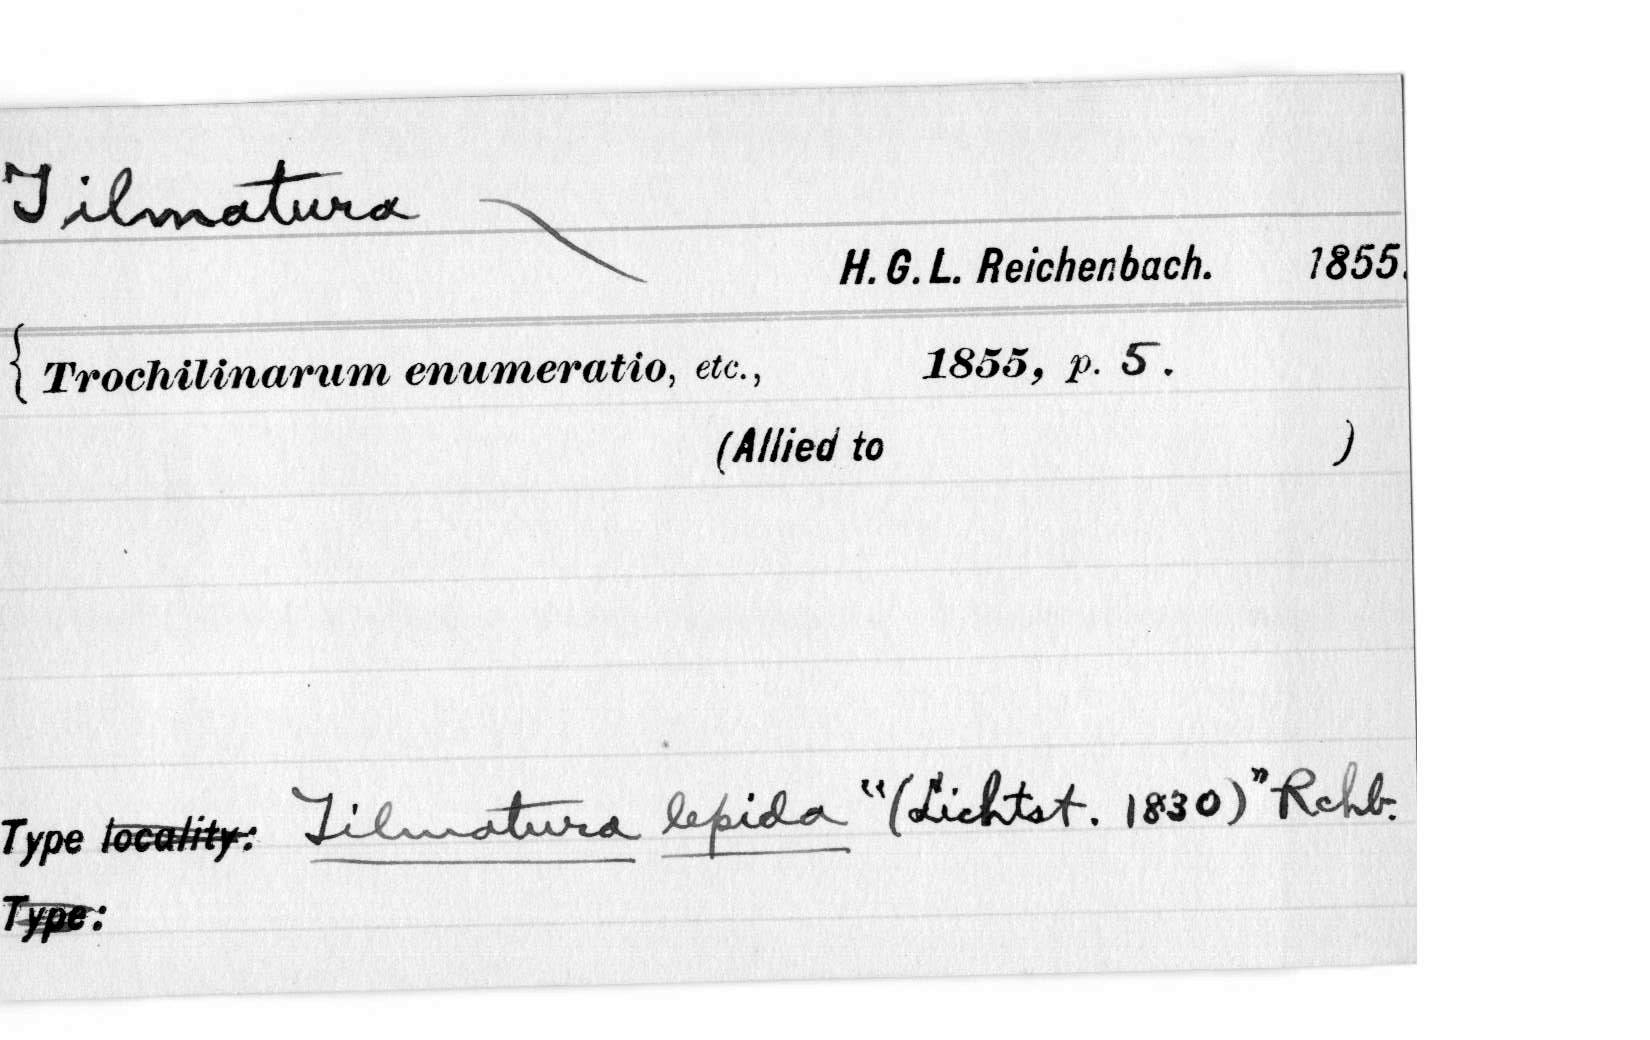 Tilmatura
H. G. L. Reichenbach. 1855.
{ Trochilinarum enumeratio, etc., 1855, p. 5.
(Allied to )
Type locality: Tilmatura lepida "(Lichtst. 1830)" Rchb.
Type: